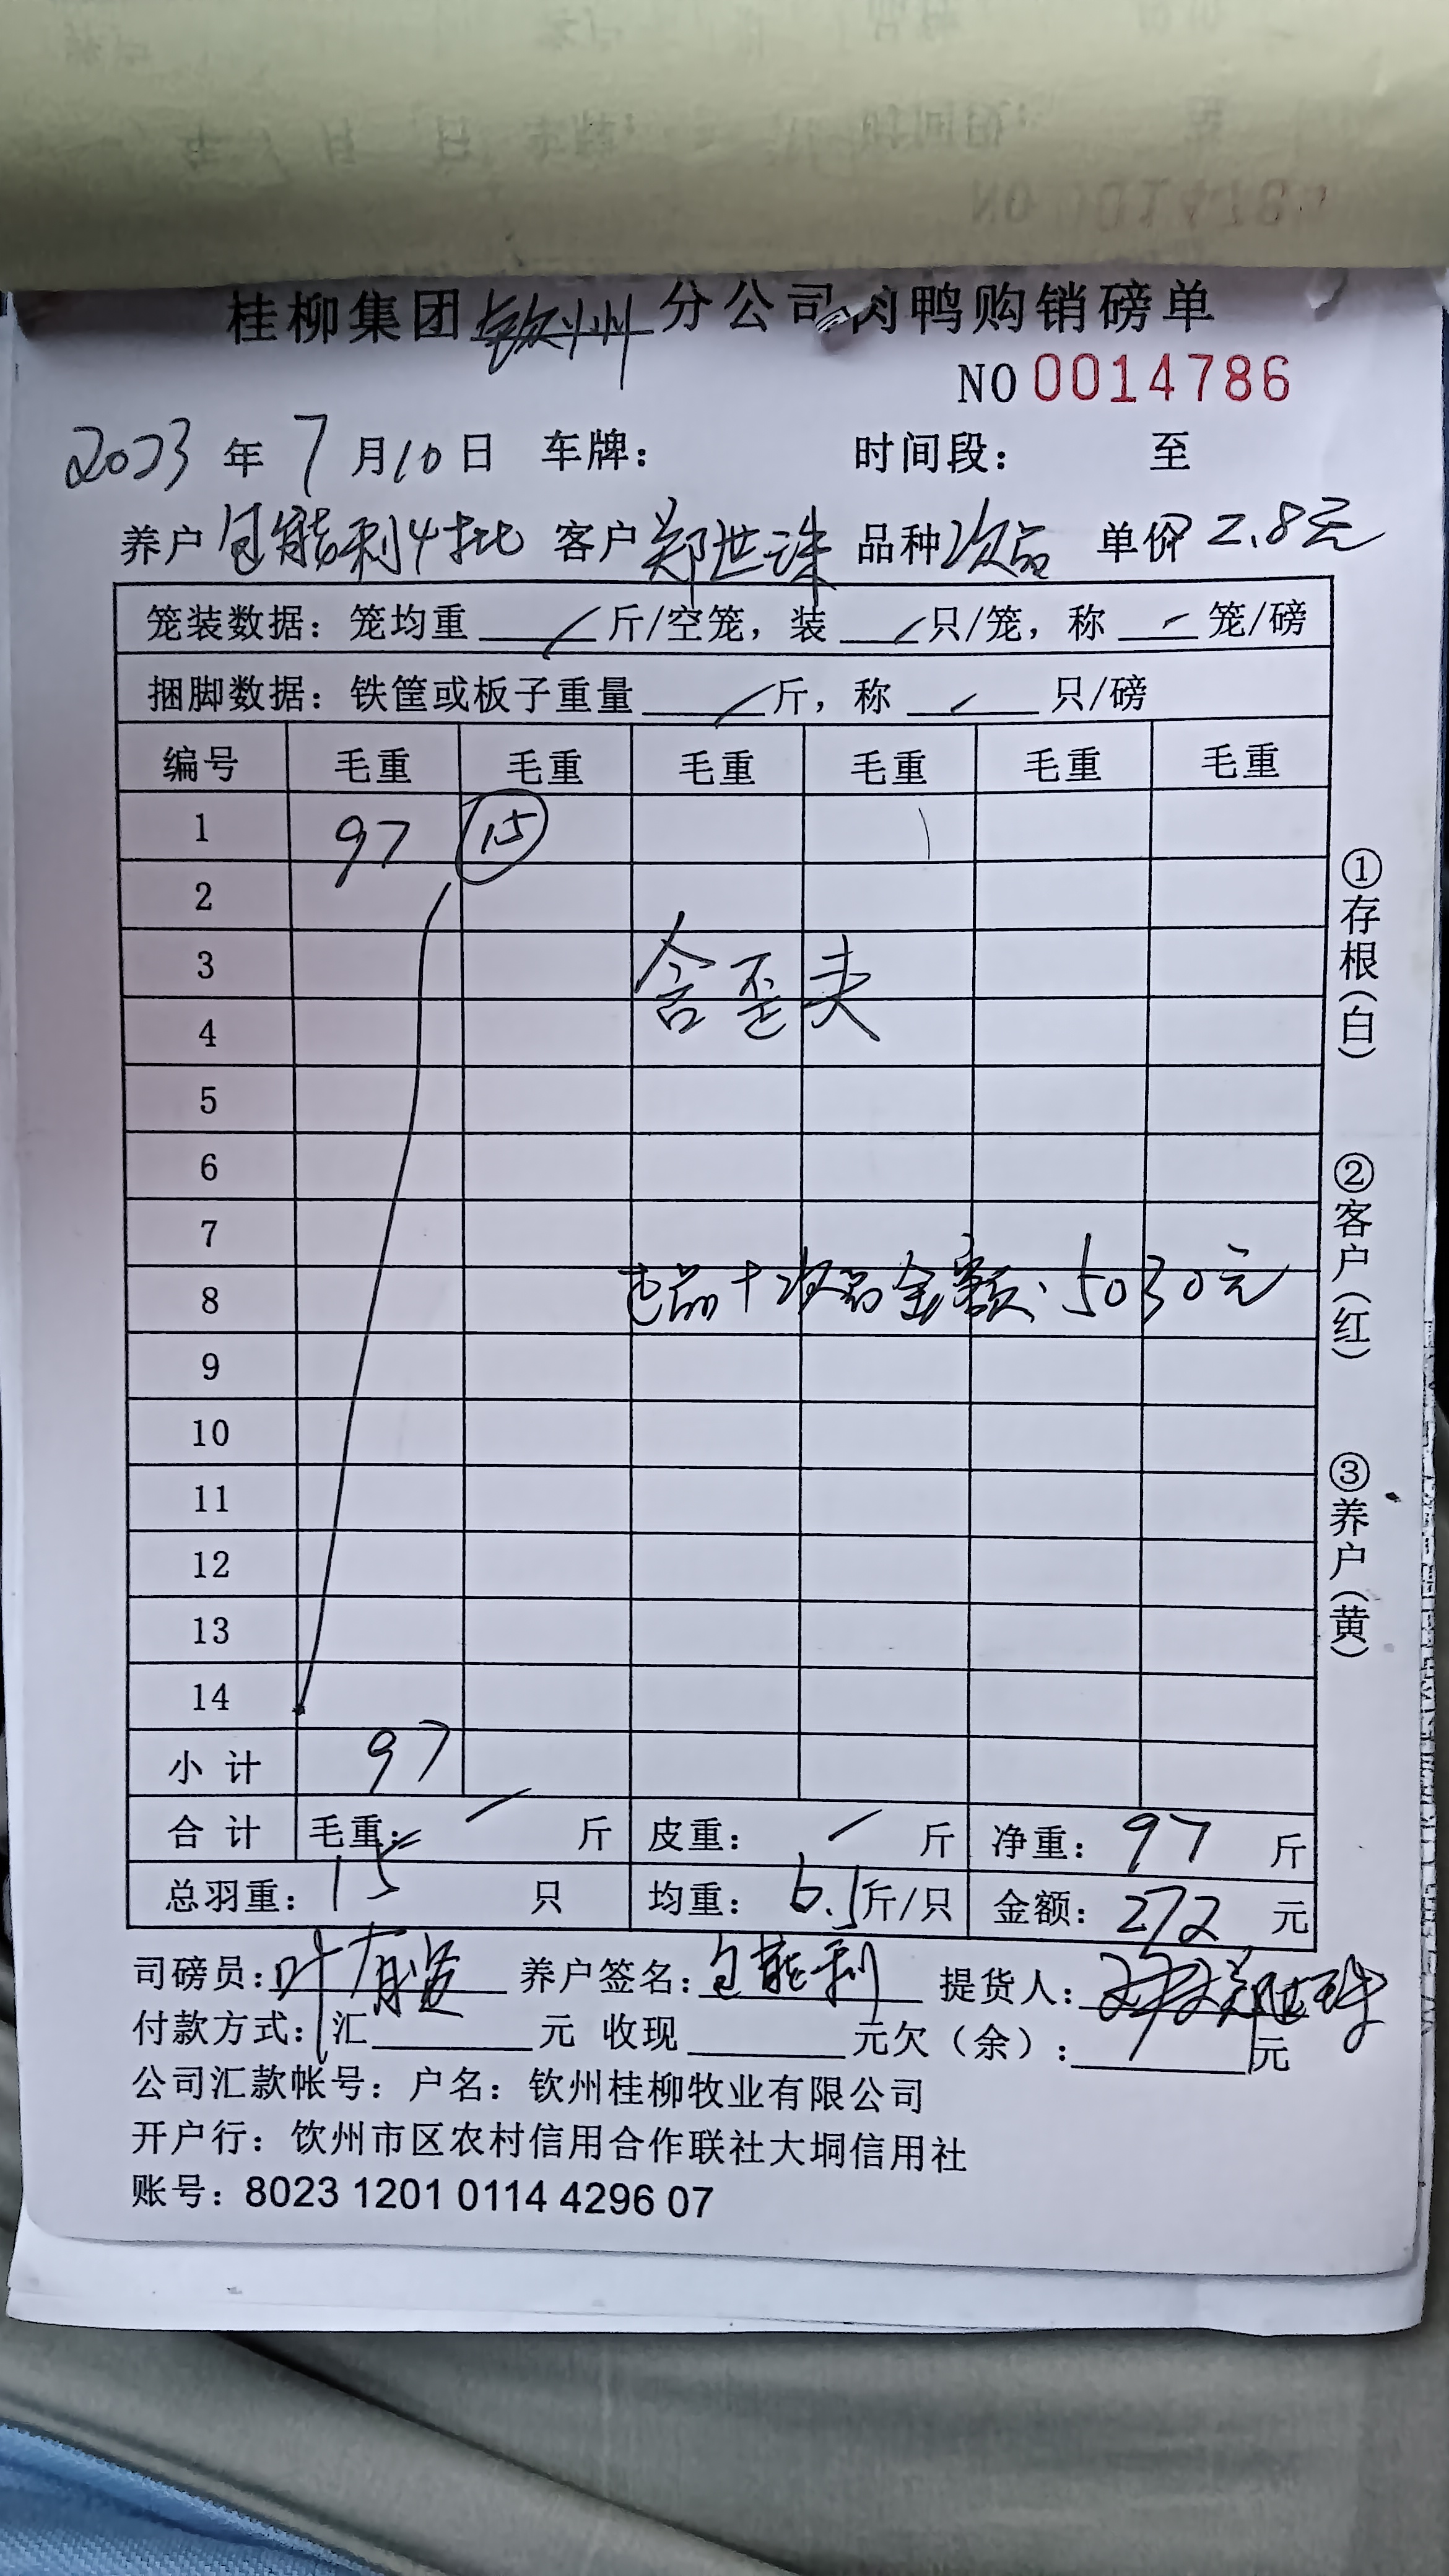 桂柳集团钦州分公司肉鸭购销磅单
NO 0014786
2023年7月10日 车牌: 时间段: 至
养户 包能利4批 客户 郑世珠 品种 次品 单价 2.8元
笼装数据: 笼均重 斤/空笼, 装 只/笼, 称 笼/磅
捆脚数据: 铁筐或板子重量 斤, 称 只/磅
编号 毛重 毛重 毛重 毛重 毛重 毛重
1 97 15
2
3
含歪头
4
5
6
7
8
品+次品金额: 5030元
9
10
11
12
13
14
小计 97
合计 毛重: 斤 皮重: 斤 净重: 97 斤
总羽重: 15 只 均重: 6.5斤/只 金额: 272 元
司磅员: 叶 养户签名: 包能利 提货人: 郑世珠
付款方式: 汇 元 收现 元欠(余): 元
公司汇款帐号: 户名: 钦州桂柳牧业有限公司
开户行: 钦州市区农村信用合作联社大垌信用社
账号: 8023 1201 0114 4296 07
①存根(白)
②客户(红)
③养户(黄)